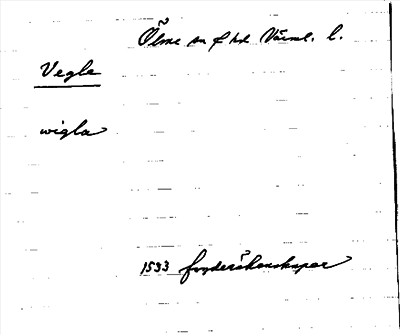 Ölme sn f hd Värml. l.
Vegle
wigla
1593 fogderäkenskaper